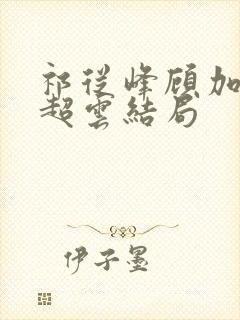 祁從峰顾加
超雲結局
伊子墨